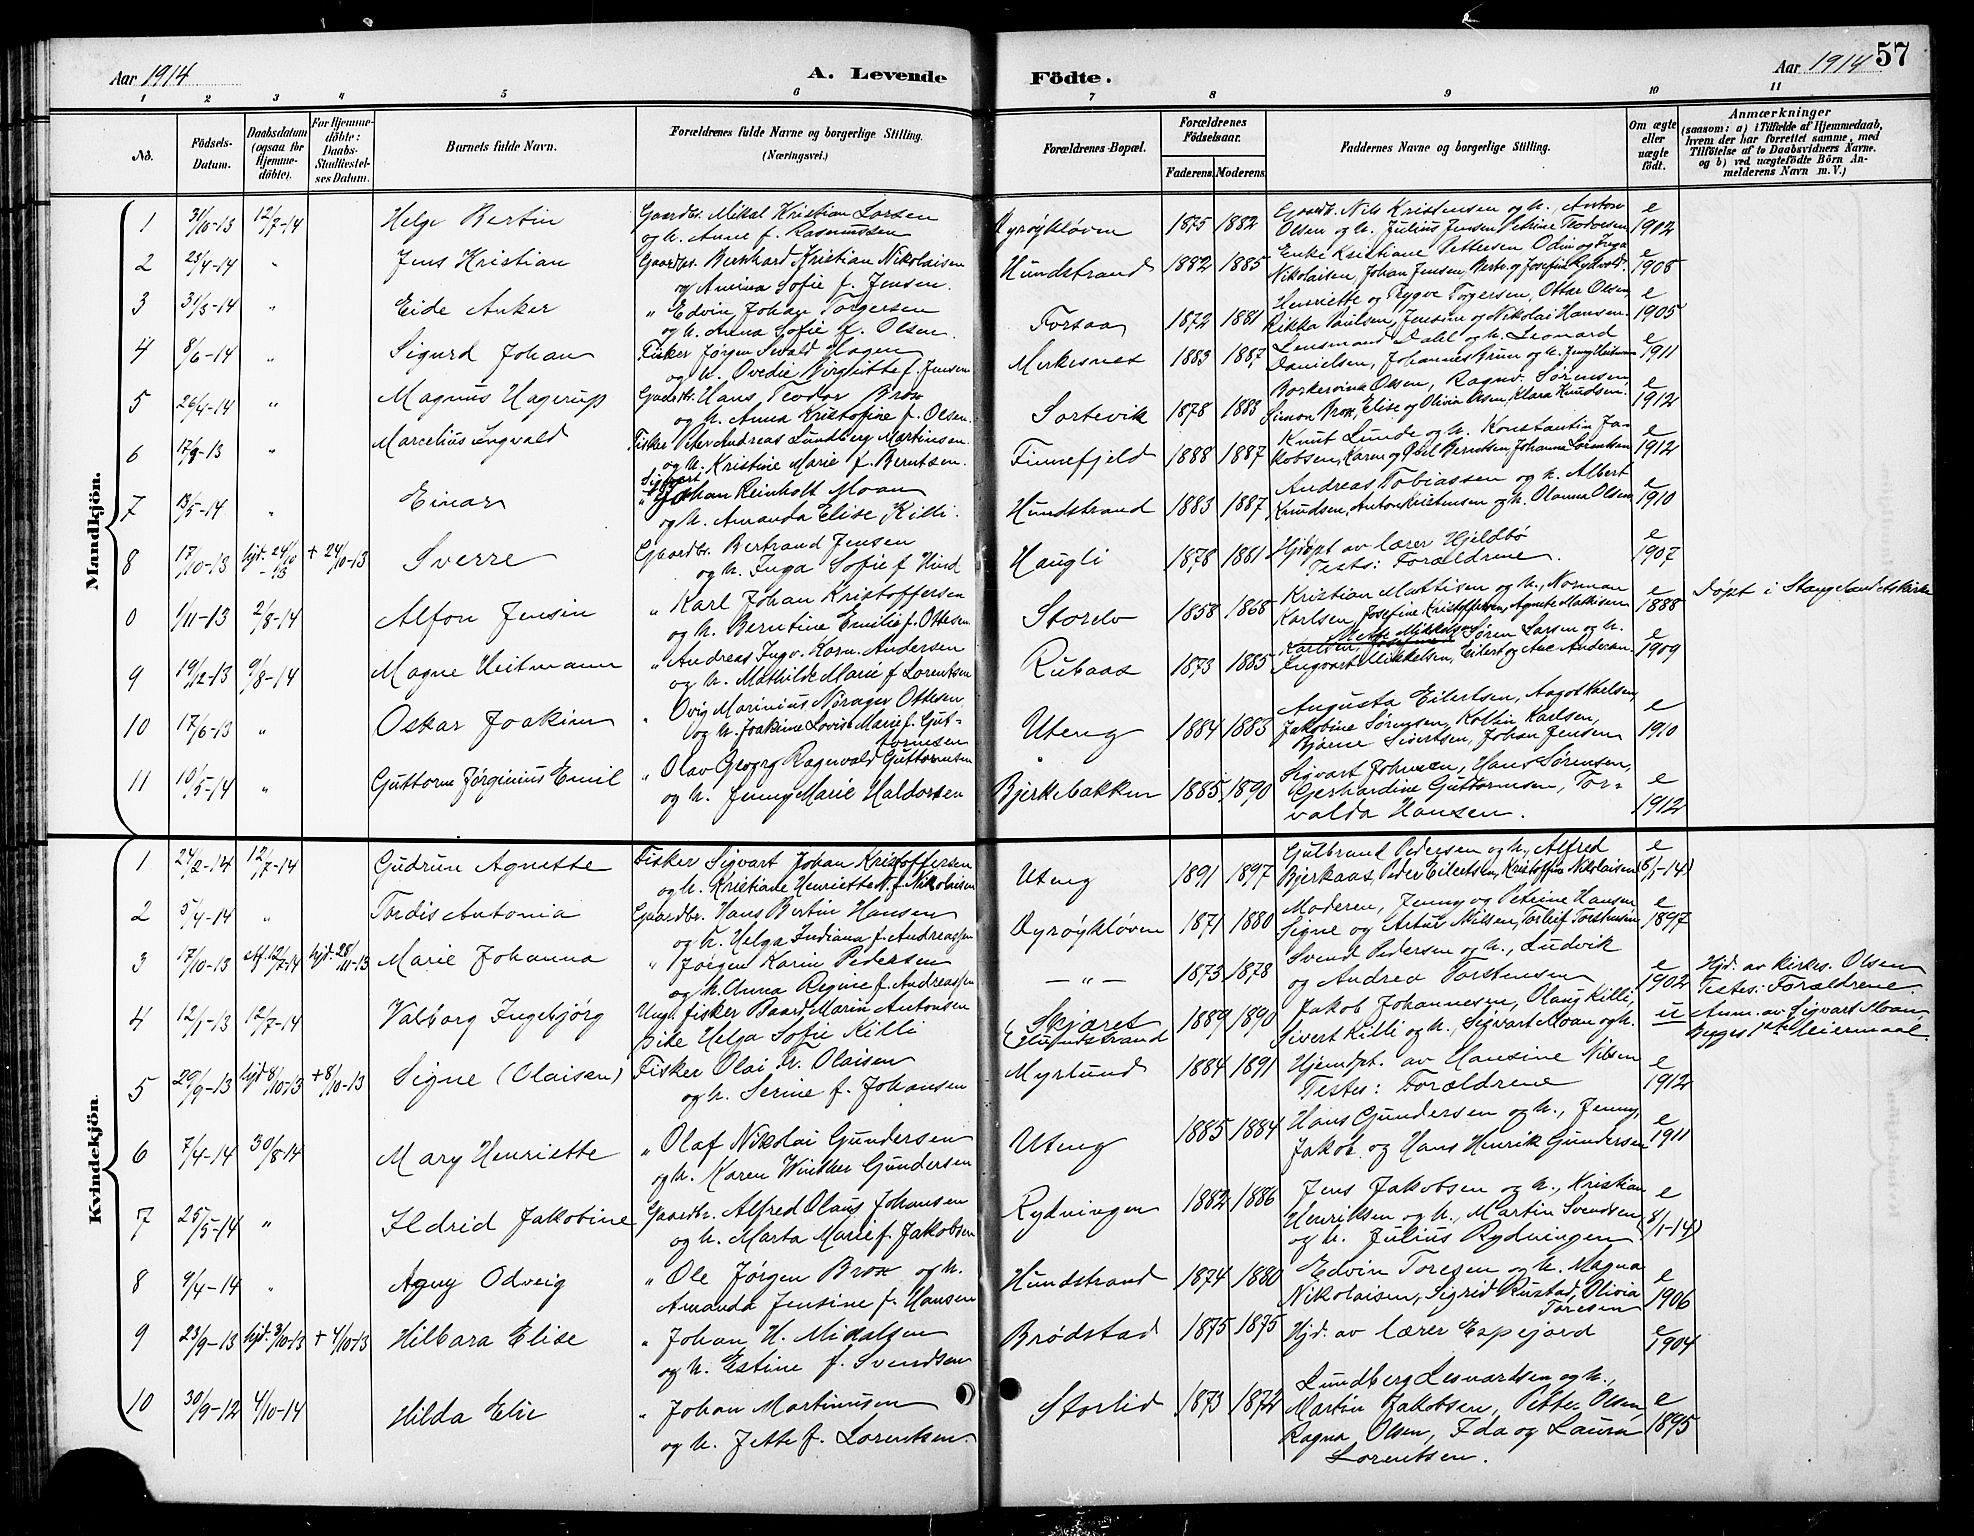 Aar 1914
A. Levende Födte.
Aar 1914
57
1 2 3 4 5 6 7 8 9 10 11
No.
Födsels-Datum.
Daabsdatum (ogsaa för Hjemme-döbte).
For Hjemme-döbte: Daabs-Stadfæstel-ses Datum.
Barnets fulde Navn.
Forældrenes fulde Navne og borgerlige Stilling. (Næringsvei.)
Forældrenes Bopæl.
Forældrenes Födselsaar.
Faderens. Moderens.
Faddernes Navne og borgerlige Stilling.
Om ægte eller uægte födt.
Anmærkninger
(saasom: a) i Tilfælde af Hjemmedaab, hvem der har forrettet samme, med Tilföielse af to Daabsvidners Navne. og b) ved uægtefödte Börn Anmelderens Navn m. V.)
Mandkjön.
1 31/10-13 12/7-14 Helge Bertin Gaardbr. Mikal Kristian Larsen Dyrøykløven 1875 1882 Gaardb. Nils Kristensen og h. Anton e
og h. Anne f. Rasmussen Olsen og h. Julius Jensen Petrine Teodorsen 1902
2 23/4-14 " Jens Kristian Gaardbr. Bernhard Kristian Nikolaisen Hundstrand 1882 1885 Enke Kristiane Pettersen Odin og Inga e
og Amina Sofie f. Jensen. Nikolaisen, Johan Jensen, Berte og Josefine Rydvold. 1908
3 31/3-14 " Eide Anker " Edvin Johan Torgersen Forsaa 1872 1881 Henriette og Trygve Torgersen, Ottar Olsen, e
og h. Anna Sofie f. Olsen Rikka Paulsen, Jensine og Nikolai Hansen. 1905
4 8/6-14 " Sigurd Johan Fisker Jørgen Sevald Hagen Mirkesnes 1883 1887 Lensmand Dahl og h. Leonard e
og h. Ovedie Birgitte f. Jensen Danielsen, Johannes Bruun og h. Jenny 1911
5 26/4-14 " Magnus Hagerup Gaardbr. Hans Teodor Brox Sortevik 1878 1888 Borkervina Olsen, Ragnv. Sørensen e
og h. Anna Kristofine f. Olsen Simon Brox, Elise og Olivia Olsen, Klara Knudsen. 1912
6 17/8-13 " Marcelius Ingvald Fisker Peter Andreas Lundberg Martinsen Finnefjeld 1888 1887 Knut Lunde og h. Konstantin Ja- e
og h. Kristine Marie f. Berntsen. kobsen, Karen og Berntsen, Johanna Lorentsen 1912
7 13/5-14 " Einar " Sigvart Johan Reinholt Moan Hundstrand 1883 1887 Andreas Tobiassen og h. Albert e
og h. Amanda Elise Killi. Knudsen, Anton Kristensen og h. Olanna Olsen 1910
8 17/10-13 hjd. 24/10-13 + 24/10-13 Sverre Gaardbr. Bertrand Jensen Haugli 1878 1881 Hjdøpt av lærer Hjeldbø e
og h. Inga Sofie f. Hind Testes: Forældrene. 1907
0 1/11-13 2/8-14 Alfon Jensin " Karl Johan Kristoffersen Storelv 1858 1868 Kristian Mattisen og h., Norman e Døpt i Stangelandets kirke
og h. Berntine Emilie f. Ottesen Karlsen, Josefine Kristoffersen, Agnete Mathisen 1888
9 19/12-13 9/8-14 Magne Heitmann " Andreas Ingv. Korn. Andersen Rubaas 1873 1885 Mette Mikkelsen Søren Larsen og h. e
og h. Mathilde Marie f. Lorentsen Ingvart Mikkelsen, Eilert og Ane Andersen 1909
10 17/6-13 " Oskar Joakim " Ovig Marinius Nørager Ottesen Uteng 1884 1883 Augusta Eilertsen, Aagot Karlsen, e
og h. Joakine Lovise Marie f. Gut-tormsen Jakobine Sørensen, Kolbin Karlsen, Bjarne Sivertsen, Johan Jensen 1910
11 10/5-14 " Guttorm Jørginius Emil " Olav Georg Ragnvald Guttormsen Bjerkebakken 1885 1890 Sigvart Johnsen, Hans Sørensen, e
og h. Jenny Marie Haldorsen Gerhardine Guttormsen, Tor- 1912
valda Hansen.
Kvindekjön.
1 24/2-14 12/7-14 Gudrun Agnette Fisker Sigvart Johan Kristoffersen Uteng 1891 1897 Gulbrand Pedersen og h., Alfred e
og h. Kristiane Henriette N. f. Nikolaisen Bjerkaas, Peder Eilertsen, Kristoffer Nikolaisen (6/1-14)
2 5/4-14 " Tordis Antonia Gaardbr. Hans Bertin Hansen Dyrøykløven 1871 1880 Moderen, Jenny og Petrine Hansen e
og h. Helga Indiana f. Andreassen Signe og Artur Nilsen, Torleif Torstensen 1897
3 17/10-13 stf. 12/7-14 hjd. 28/11-13 Marie Johanna " Jørgen Karin Pedersen — " — 1873 1878 Svend Pedersen og h., Ludvik e Hjd. av kirkes. Olsen
og h. Anna Regine f. Andreassen og Andrea Torstensen 1902 Testes: Forældrene.
4 12/1-13 12/7-14 Valborg Ingebjørg Ung. fisker Baard Marin Antonsen Skjæret 1889 1890 Jakob Johannesen, Olaug Killi, u Anm. av Sigvart Moan
Pike Helga Sofie Killi Hundstrand Sivert Killi og h., Sigvart Moan og h. Begges 1ste Leiermaal.
5 29/9-13 hjd 8/10-13 + 8/10-13 Signe (Olaisen) Fisker Olai Kr. Olaisen Myrlund 1884 1891 Hjemdpt. av Hansine Nilsen e
og h. Serine f. Johansen Testes: Forældrene 1912
6 7/4-14 30/8-14 Mary Henriette " Olaf Nikolai Gundersen Uteng 1885 1884 Hans Gundersen og h., Jenny, e
og h. Karen Winther Gundersen Jakob og Hans Henrik Gundersen 1911
7 25/5-14 " Ildrid Jakobine Gaardbr. Alfred Olaus Johansen Rydningen 1882 1886 Jens Jakobsen og h., Kristian e
og h. Marta Marie f. Jakobsen Henriksen og h., Martin Svendsen (8/1-14)
og h. Julius Rydningen
8 9/4-14 " Agny Odveig " Ole Jørgen Brox og h. Hundstrand 1874 1880 Edvin Toresen og h. Magna e
Amanda Jensine f. Hansen Nikolaisen, Sigrid Rustad, Olivia Toresen 1906
9 23/9-13 hjd. 3/10-13 + 4/10-13 Hilbara Elise " Johan H. Mikalsen Brødstad 1875 1875 Hjd. av lærer Espejord e
og h. Estine f. Svendsen 1904
10 30/9-12 4/10-14 Hilda Elie " Johan Martinusen Storlid 1873 1872 Lundberg Lesvardsen og h., e
og h. Jette f. Lorentsen. Martin Jakobsen, Petter Olsen, 1895
Ragna Olsen, Ida og Laura
Lorentsen.